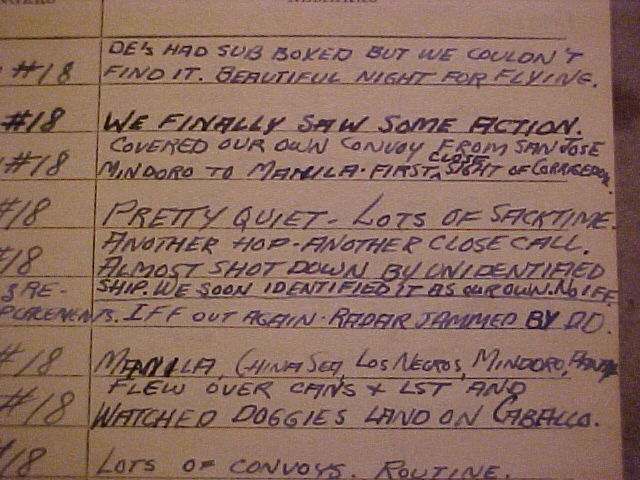 REMARKS
DE's HAD SUB BOXED BUT WE COULDN'T
#18 FIND IT. BEAUTIFUL NIGHT FOR FLYING.
#18 WE FINALLY SAW SOME ACTION.
COVERED OUR OWN CONVOY FROM SAN JOSE
#18 MINDORO TO MANILA. FIRST CLOSE SIGHT OF CORREGEDOR.
#18 PRETTY QUIET - LOTS OF SACKTIME.
ANOTHER HOP - ANOTHER CLOSE CALL.
#18 ALMOST SHOT DOWN BY UNIDENTIFIED
SHIP. WE SOON IDENTIFIED IT AS OUR OWN. NO IFF
IFF OUT AGAIN - RADAR JAMMED BY DD.
#18 MANILA, CHINA SEA, LOS NEGROS, MINDORO, PANAY
FLEW OVER CANS & LST AND
#18 WATCHED DOGGIES LAND ON CABALLO.
#18 LOTS OF CONVOYS. ROUTINE.